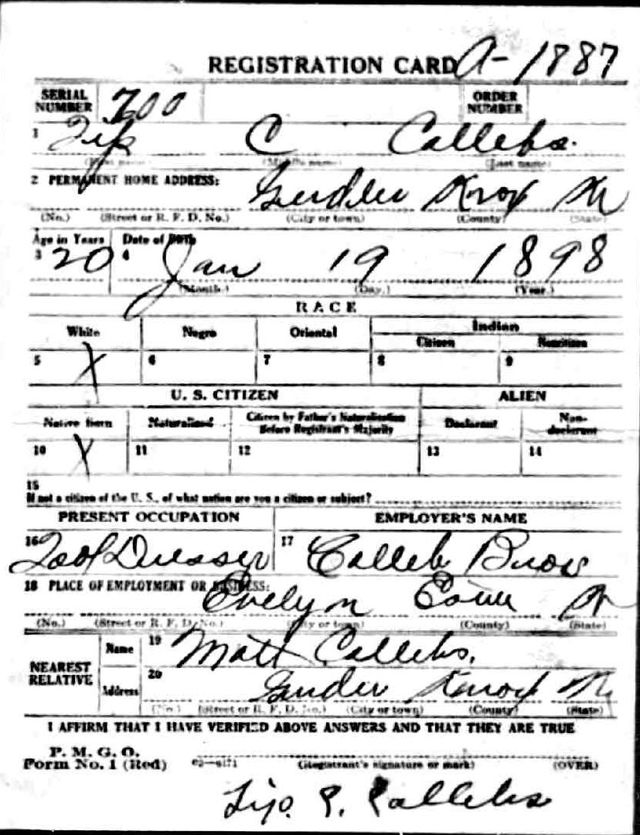 REGISTRATION CARD A-1887
SERIAL NUMBER 700 ORDER NUMBER
1 C Callebs.
(First name) (Middle name) (Last name)
2 PERMANENT HOME ADDRESS: Knox
(No.) (Street or R. F. D. No.) (City or town) (County) (State)
Age in Years Date of Birth
3 20 4 Jan 19 1898
(Month.) (Day.) (Year.)
RACE
White Negro Oriental Indian
Citizen Noncitizen
5 X 6 7 8 9
U. S. CITIZEN ALIEN
Native Born Naturalized Citizen by Father's Naturalization Before Registrant's Majority Declarant Non-declarant
10 X 11 12 13 14
15
If not a citizen of the U. S., of what nation are you a citizen or subject?
PRESENT OCCUPATION EMPLOYER'S NAME
16 Tool Dresser 17 Calleb Bros
18 PLACE OF EMPLOYMENT OR BUSINESS:
Evelyn
(No.) (Street or R. F. D. No.) (City or town) (County) (State)
NEAREST RELATIVE Name 19 Matt Callebs.
Address 20 Knox
(No.) (Street or R. F. D. No.) (City or town) (County) (State)
I AFFIRM THAT I HAVE VERIFIED ABOVE ANSWERS AND THAT THEY ARE TRUE
P. M. G. O.
Form No. 1 (Red) (Registrant's signature or mark) (OVER)
Callebs